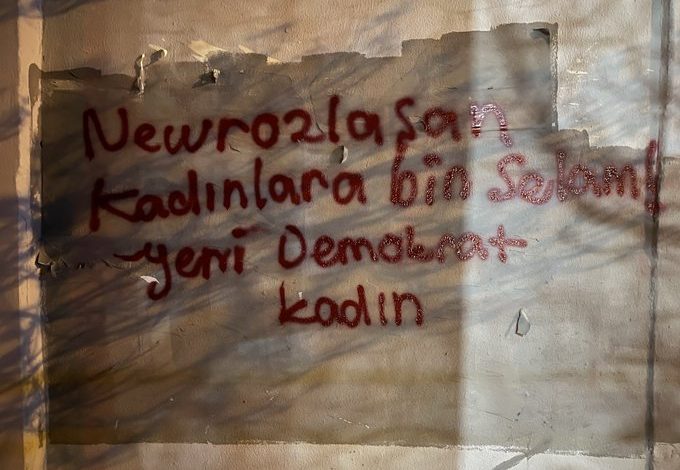 Newrozlaşan
Kadınlara bin Selam!
-yeni Demokrat
kadın